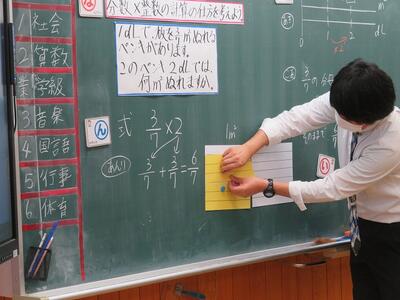 1 社会
2 算数
業 学級
3 音楽
4 国語
5 行事
6 体育
分数×整数の計算の仕方を考えよう
1dLで、板を3/7m²ぬれる
ペンキがあります。
このペンキ2dLでは、
何m²ぬれますか。
ん
式 3/7×2
あんり
3/7+3/7=6/7
1m²
0 1 2
×2
3/7の分母
そのまま